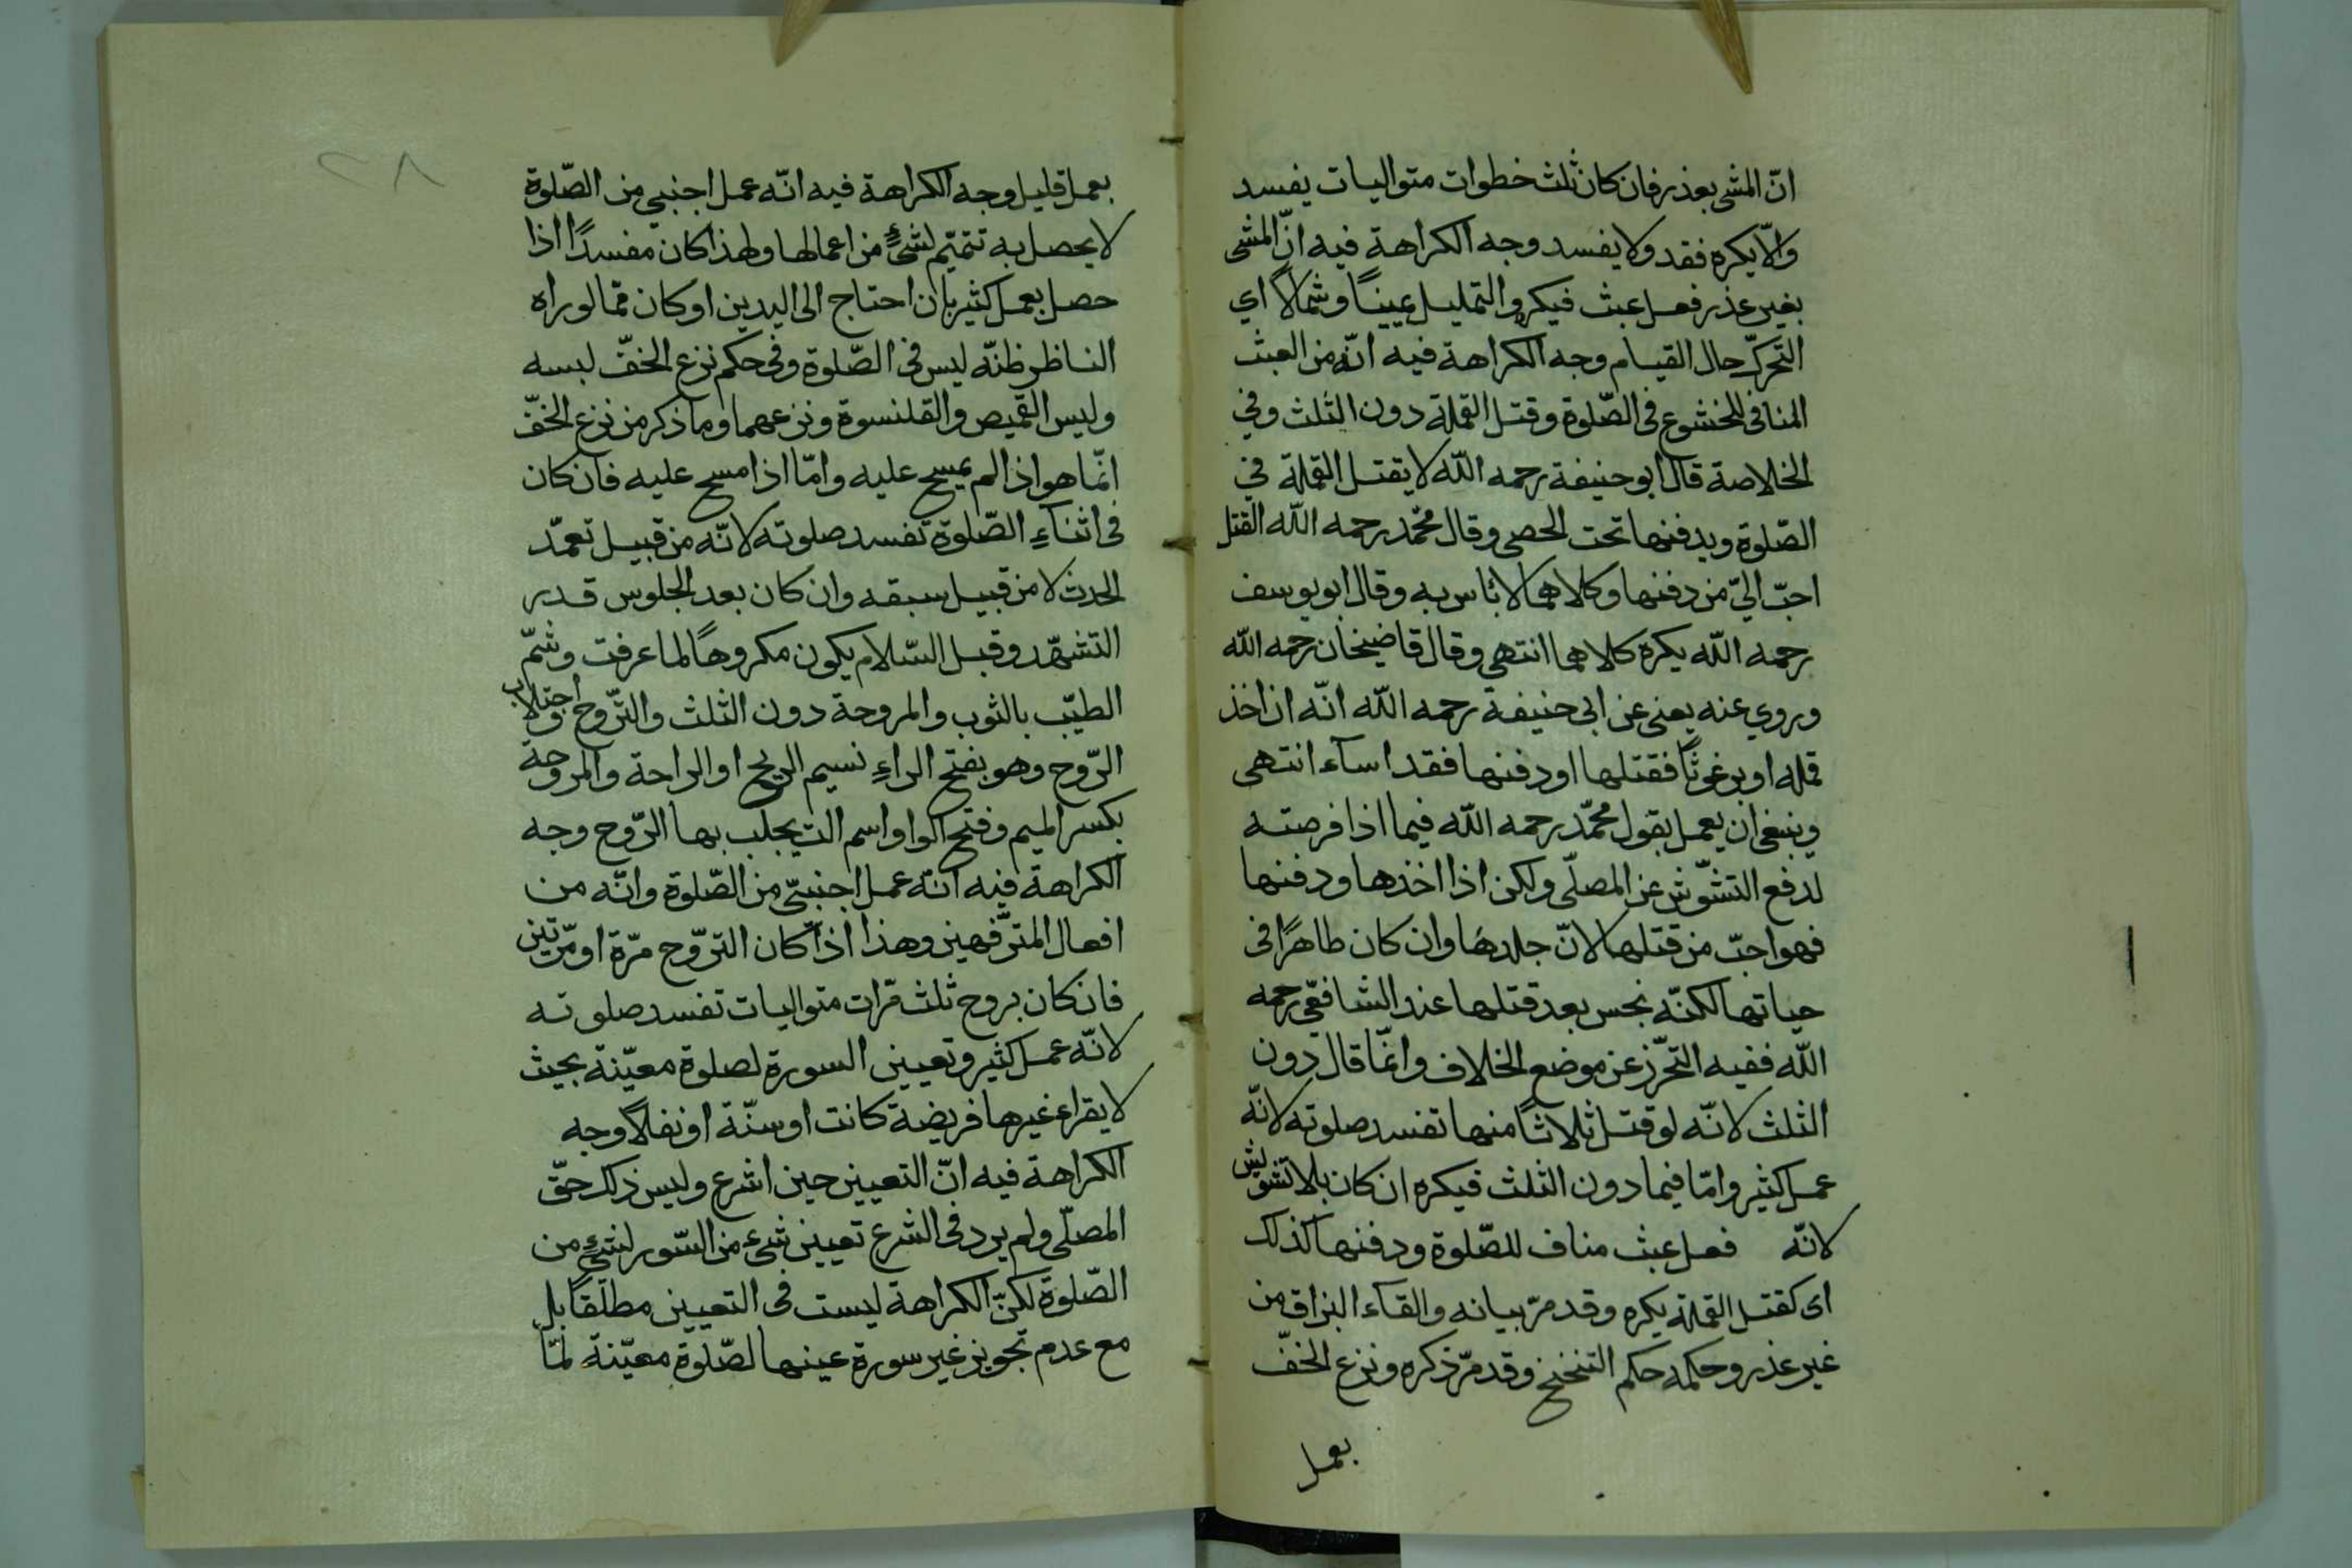 انّ المشى بعذر فان كان ثلث خطوات متواليات يفسد
والّا يكره فقد ولا يفسد وجه الكراهة فيه انّ المشى
بغير عذر فعل عبث فيكره والتمليل يمينًا وشمالًا اي
التحرّك حال القيام وجه الكراهة فيه انّه من العبث
المنافى للخشوع فى الصّلوة وقتل القملة دون الثلث وفي
الخلاصة قال ابو حنيفة رحمه اللّه لا يقتل القملة في
الصّلوة ويدفنها تحت الحصى وقال محمّد رحمه اللّه القتل
احبّ اليّ من دفنها وكلاهما لا بٔاس به وقال ابو يوسف
رحمه اللّه يكره كلاهما انتهى وقال قاضيخان رحمه اللّه
وروي عنه يعنى عن ابى حنيفة رحمه اللّه انّه ان اخذ
قمله او برغوثًا فقتلها او دفنها فقد اسآء انتهى
وينبغى ان يعمل بقول محمّد رحمه اللّه فيما اذا فرصته
لدفع التشوّش عن المصلّى ولكن اذا اخذها ودفنها
فهو احبّ من قتلها لانّ جلدها وان كان طاهرًا فى
حياتها لكنّه نجس بعد قتلها عند الشافعّى رحمه
اللّه ففيه التحرّز عن موضع الخلاف وانّما قال دون
الثلث لانّه لو قتل ثلاثًا منها تفسد صلوته لانّه
عمل كثير وامّا فيما دون الثلث فيكره ان كان بلا تشويش
لانّه فعل عبث مناف للصّلوة ودفنها كذلك
اى كقتل القملة يكره وقد مرّ بيانه والقآء البزاق من
غير عذر وحكمه حكم التنحنح وقد مرّ ذكره ونزع الخفّ
بعمل
٢٨
بعمل قليل وجه الكراهة فيه انّه عمل اجنبي من الصّلوة
لا يحصل به تتميّم لشئٍ من اعمالها ولهذا كان مفسدًا اذا
حصل بعمل كثير بان احتاج الى اليدين او كان ممّا لو راه
الناظر ظنّه ليس فى الصّلوة وفى حكم نزع الخفّ لبسه
وليس القميص والقلنسوة ونزعهما وما ذكر من نزع الخفّ
انّما هو اذا لم يمسح عليه وامّا اذا مسح عليه فان كان
فى اثنآءِ الصّلوة تفسد صلوته لانّه من قبيل تعمّد
الحدث لا من قبيل سبقه وان كان بعد الجلوس قدر
التشهّد وقبل السّلام يكون مكروهًا لما عرفت وشمّ
الطيّب بالثوب والمروحة دون الثلث والتّروح اجتلاب
الرّوح وهو بفتح الراءِ نسيم الريح او الراحة والمروحة
بكسر الميم وفتح الواو اسم الت يجلب بها الرّوح وجه
الكراهة فيه انّه عمل اجنبىّ من الصّلوة وانّه من
افعال المترّفهين وهذا اذا كان التروّح مرّة او مرّتين
فان كان بروح ثلث مرّات متواليات تفسد صلوته
لانّه عمل كثير وتعيين السورة لصلوة معيّنة بحيث
لا يقراء غيرها فريضة كانت او سنّة او نفلًا وجه
الكراهة فيه انّ التعيين حين اشرع وليس ذلك حقّ
المصلّى ولم يرد فى الشرع تعيين شئ من السّور لشئ من
الصّلوة لكنّ الكراهة ليست فى التعيين مطلقًا بل
مع عدم تجويز غير سورة عينها لصّلوة معيّنة لمّا